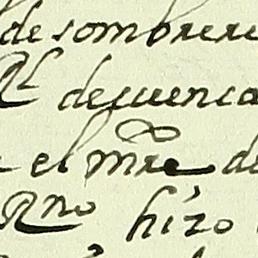 de sombrere
Rl de cuenca
el mre de
Rno hizo